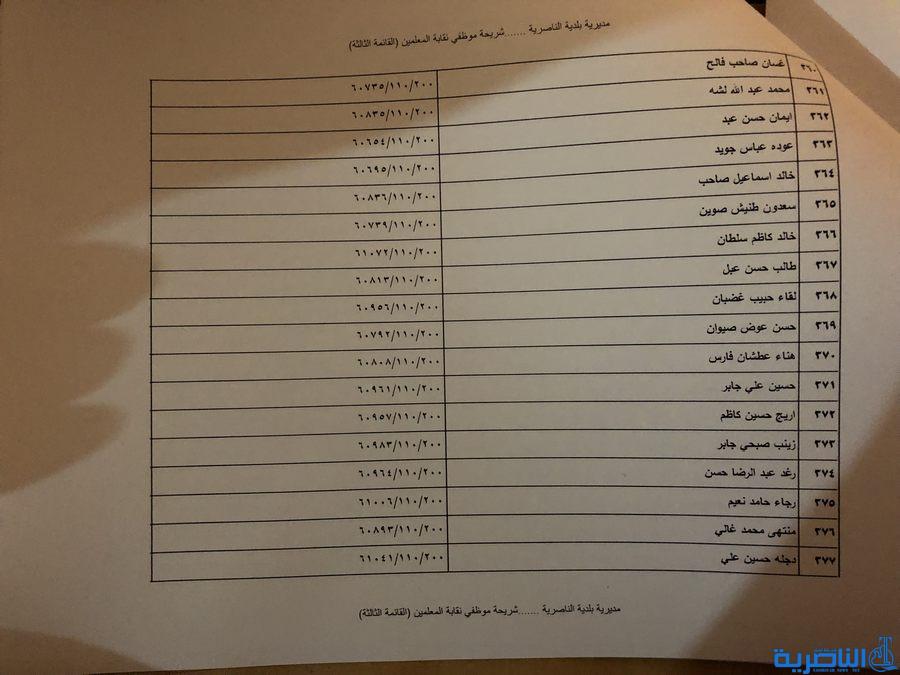 مديرية بلدية الناصرية .......شريحة موظفي نقابة المعلمين (القائمة الثالثة)
٣٦٠ غسان صاحب فالح ٦٠٧٣٥/١١٠/٢٠٠
٣٦١ محمد عبد الله لشه ٦٠٨٣٥/١١٠/٢٠٠
٣٦٢ ايمان حسن عبد ٦٠٦٥٤/١١٠/٢٠٠
٣٦٣ عوده عباس جويد ٦٠٦٩٥/١١٠/٢٠٠
٣٦٤ خالد اسماعيل صاحب ٦٠٨٣٦/١١٠/٢٠٠
٣٦٥ سعدون طنيش صوين ٦٠٧٣٩/١١٠/٢٠٠
٣٦٦ خالد كاظم سلطان ٦١٠٧٢/١١٠/٢٠٠
٣٦٧ طالب حسن عبل ٦٠٨١٣/١١٠/٢٠٠
٣٦٨ لقاء حبيب غضبان ٦٠٩٥٦/١١٠/٢٠٠
٣٦٩ حسن عوض صيوان ٦٠٧٩٢/١١٠/٢٠٠
٣٧٠ هناء عطشان فارس ٦٠٨٠٨/١١٠/٢٠٠
٣٧١ حسين علي جابر ٦٠٩٦١/١١٠/٢٠٠
٣٧٢ اريج حسين كاظم ٦٠٩٥٧/١١٠/٢٠٠
٣٧٣ زينب صبحي جابر ٦٠٩٨٣/١١٠/٢٠٠
٣٧٤ رغد عبد الرضا حسن ٦٠٩٦٤/١١٠/٢٠٠
٣٧٥ رجاء حامد نعيم ٦١٠٠٦/١١٠/٢٠٠
٣٧٦ منتهى محمد غالي ٦٠٨٩٣/١١٠/٢٠٠
٣٧٧ دجله حسين علي ٦١٠٤١/١١٠/٢٠٠
مديرية بلدية الناصرية .......شريحة موظفي نقابة المعلمين (القائمة الثالثة)
الناصرية